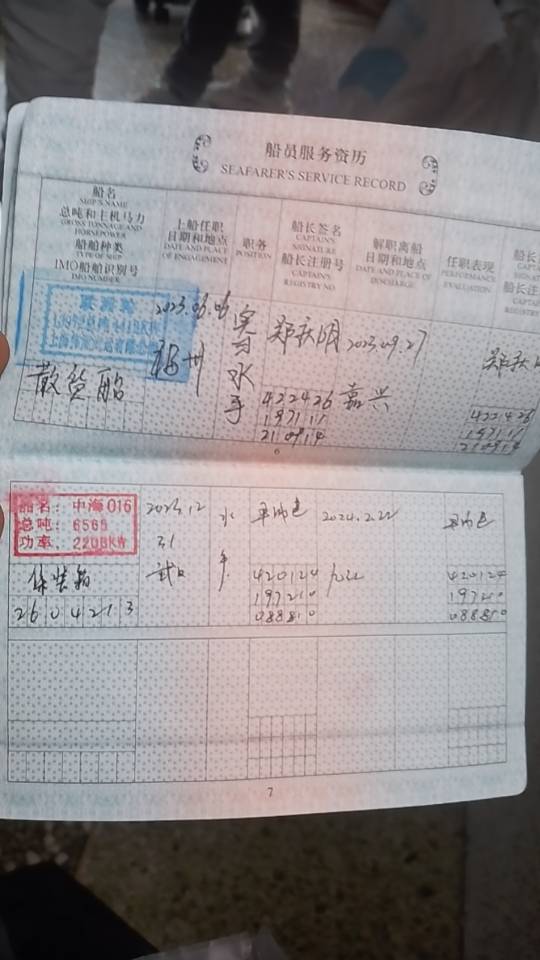 船员服务资历
SEAFARER'S SERVICE RECORD
船名
SHIP'S NAME
总吨和主机马力
GROSS TONNAGE AND
HORSEPOWER
船舶种类
TYPE OF SHIP
IMO船舶识别号
IMO NUMBER
上船任职
日期和地点
DATE AND PLACE
OF ENGAGEMENT
职务
POSITION
船长签名
CAPTAIN'S
SIGNATURE
船长注册号
CAPTAIN'S
REGISTRY NO
解职离船
日期和地点
DATE AND PLACE OF
DISCHARGE
任职表现
PERFORMANCE
EVALUATION
船长
CAPTA
SIGNA
船长注
CAPTA
REGISTRY
2023.06.06
散货船
实习水手
2023.09.27
嘉兴
422426
197111
210914
422426
197111
210914
6
船名: 中海016
总吨: 6565
功率: 2206KW
2604213
2023.12
31
水手
2024.2.22
420124
197210
088810
420124
197210
088810
7